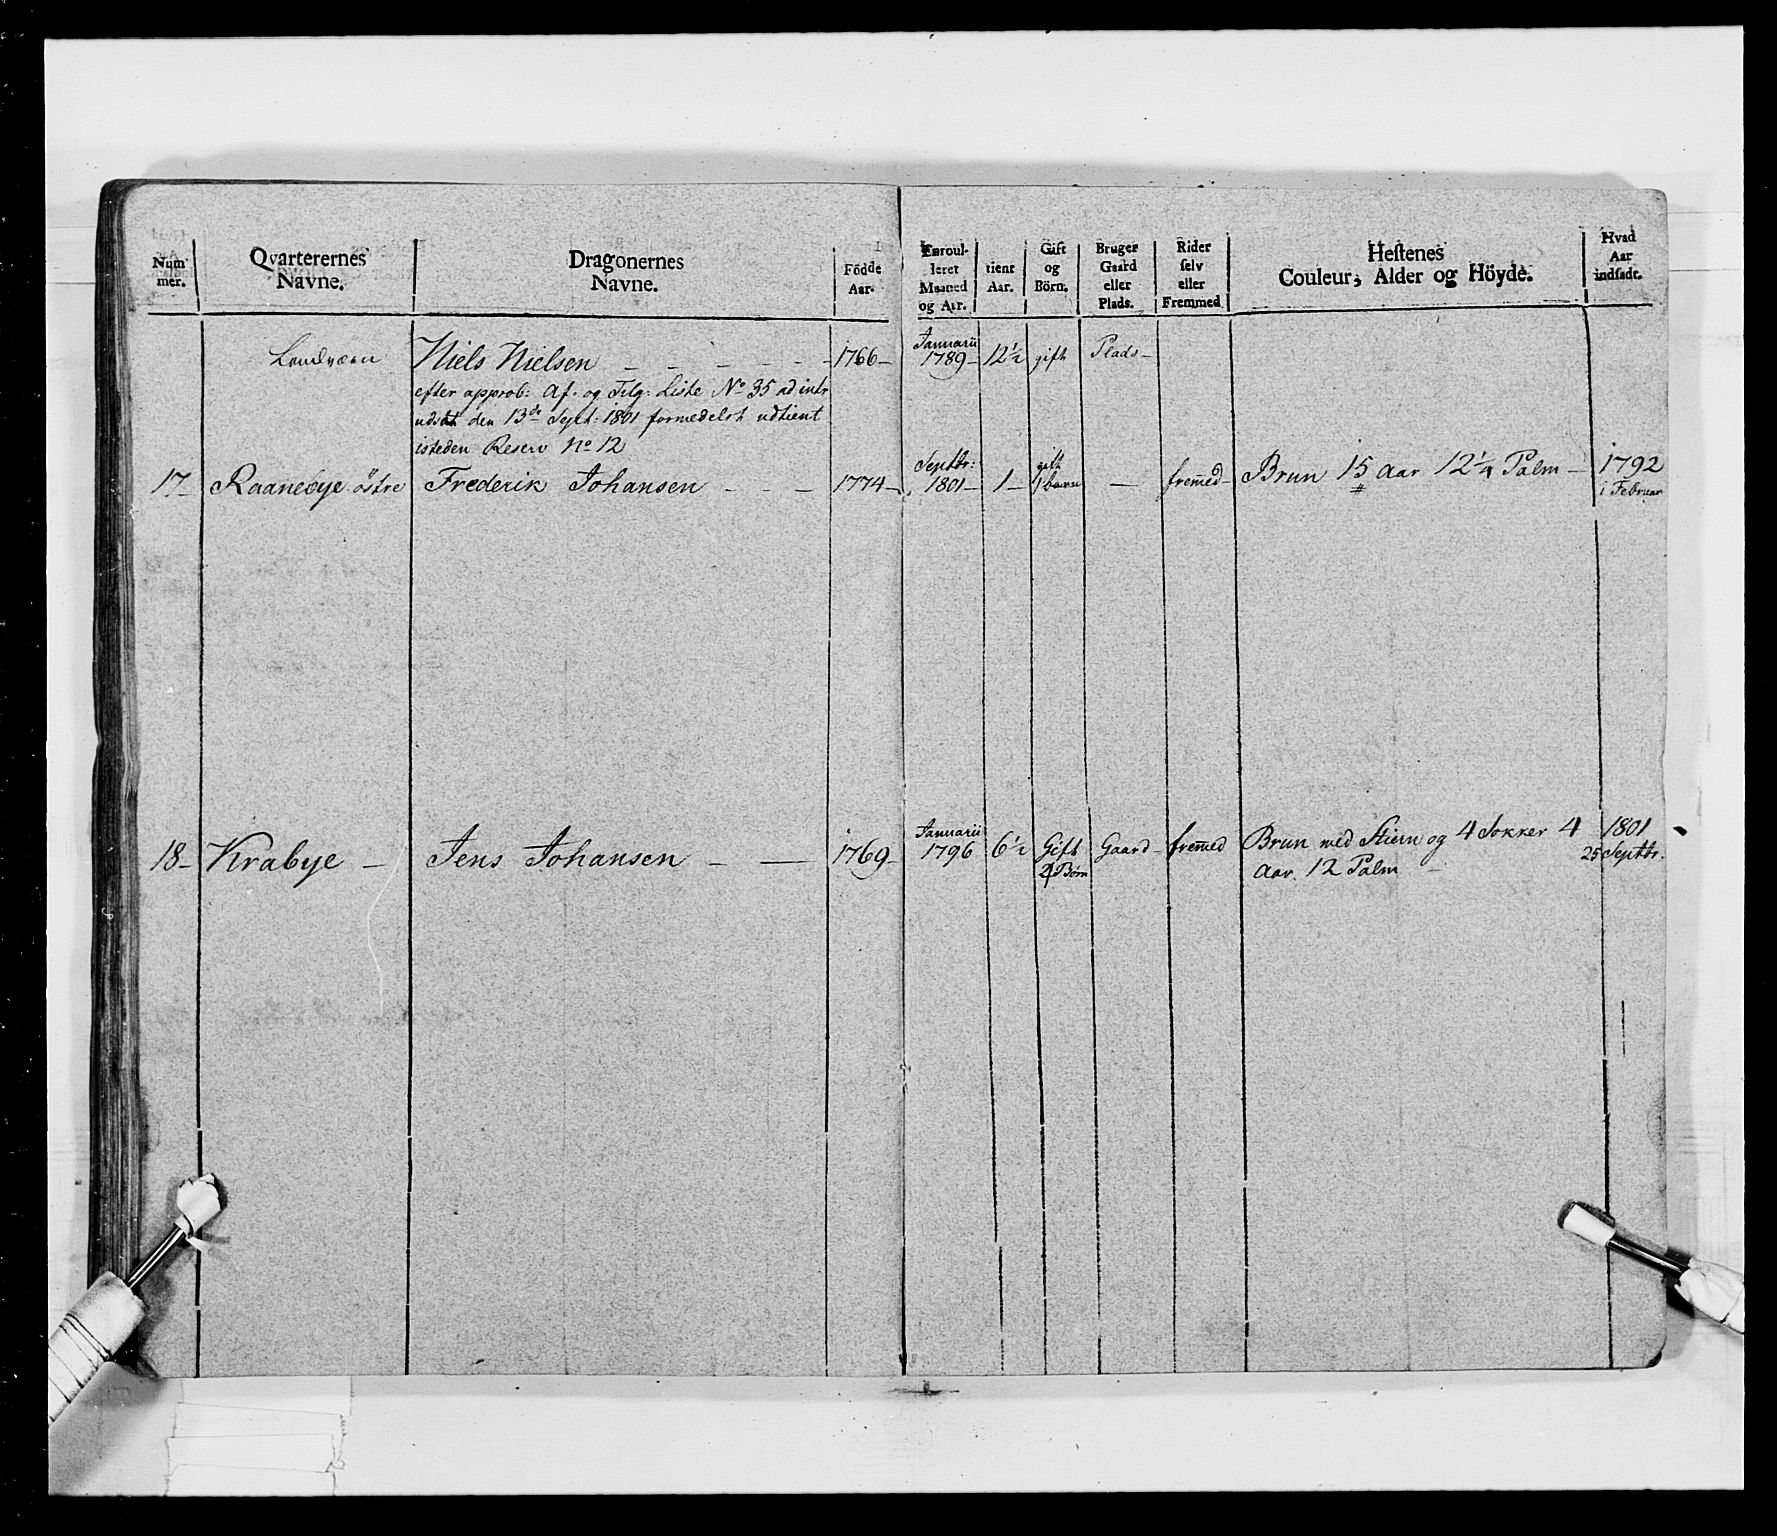 Num
mer.
Qvarterernes
Navne.
Dragonernes
Navne.
Födde
Aar.
Enroul-
leret
Maaned
og Aar.
tient
Aar.
Gift
og
Börn.
Bruger
Gaard
eller
Plads.
Rider
selv
eller
Fremmed
Hestenes
Couleur, Alder og Höyde.
Hvad
Aar
indsadt.
Landværn Niels Nielsen - - - - - 1766- Januarii 1789- 12½ gift Plads-
efter approb: Af. og Tilg: Liste No 35 ad intr
udsat den 13de Sept: 1801 formedelst udtient
isteden Reserv No 12
17- Raanebye östre Frederik Johansen - - - 1774- Septbr: 1801- 1- gift 1 barn - fremed- Brun 15 Aar 12¼ Palm - 1792 i Februar
18- Krabye - Jens Johansen - - 1769- Januarii 1796 6½ Gift 2 Börn Gaard- fremed Brun med Stiern og 4 Sokker 4 1801
Aar. 12 Palm - 25 Septbr.